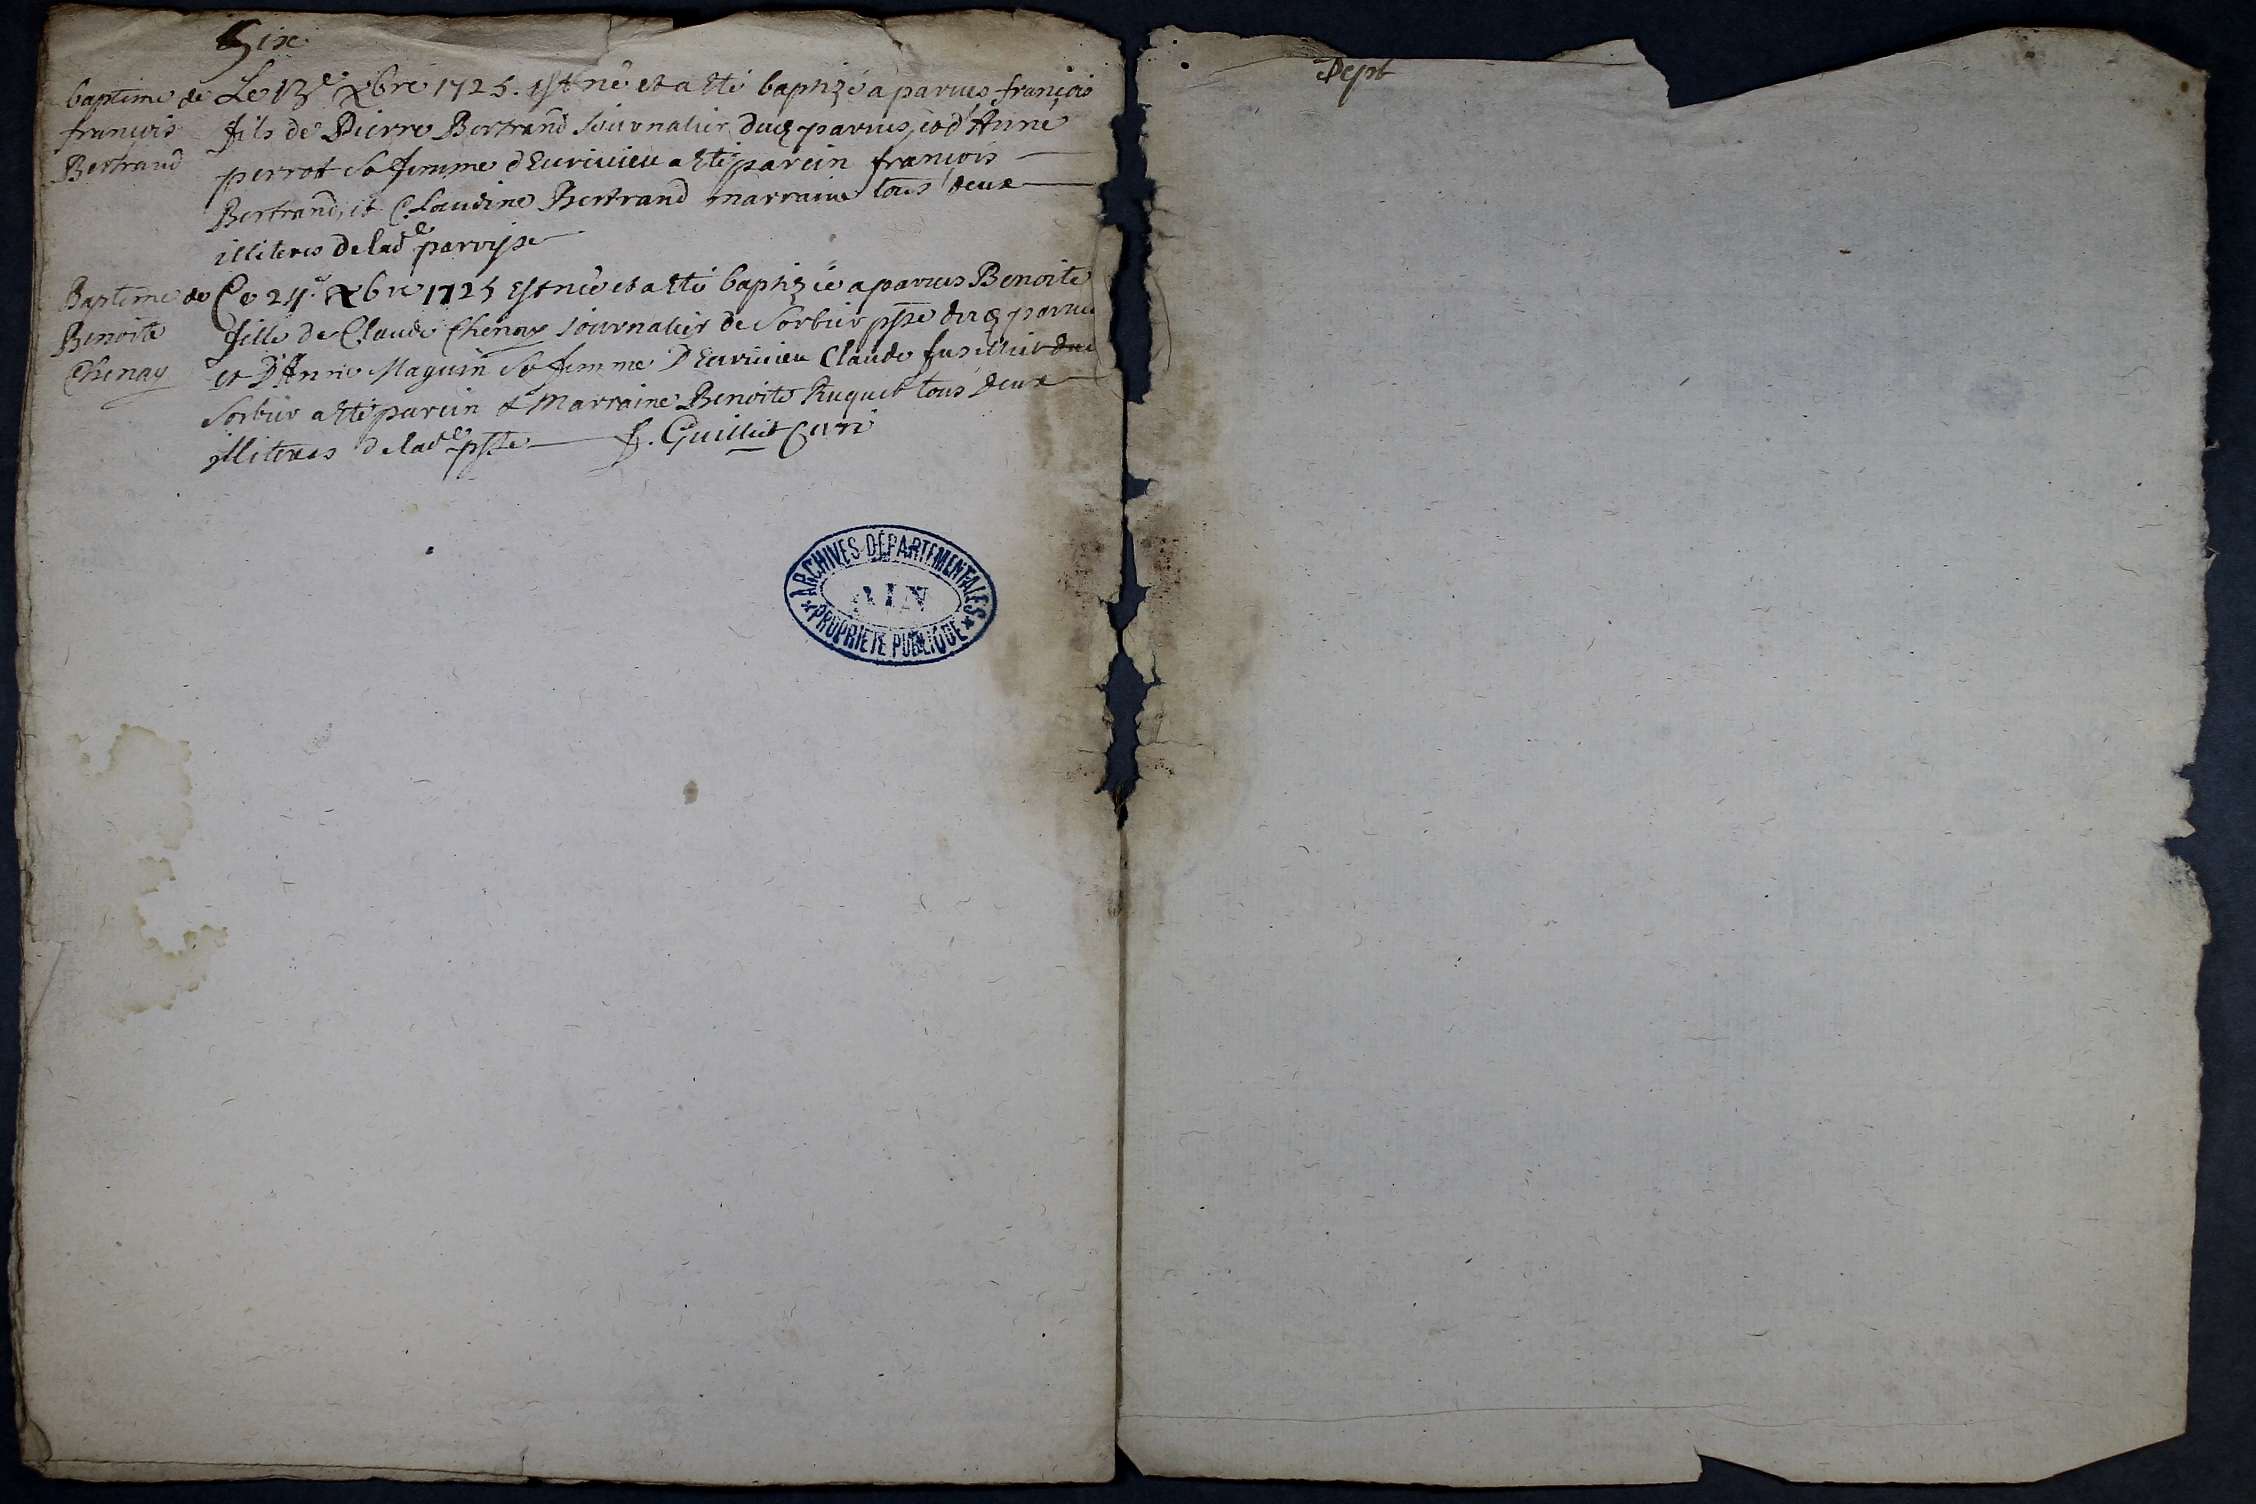 Six
baptême de Le 13e xbre 1725. est né et a êté baptizé a parves françois
françois fils de Pierre Bertrand journalier dud parves, et d'Anne
Bertrand perrot sa femme d'Ecrivieu a êté parein françois
Bertrand, et Claudine Bertrand marraine tous deux
illiteres de lade parroisse
Baptême de Ce 24e xbre 1725 est née et a êté baptizée a parves Benoite
Benoite fille de Claude Chenay journalier de Sorbier psse dud parves
Chenay et D'Anne Maguin sa femme D'Ecrivieu Claude fusillier dud
Sorbier a êté parein & Marraine Benoite Ruquet tous deux
illiteres de lade psse f. Guilliet Curé
ARCHIVES DÉPARTEMENTALES
AIN
PROPRIÉTÉ PUBLIQUE
Sept